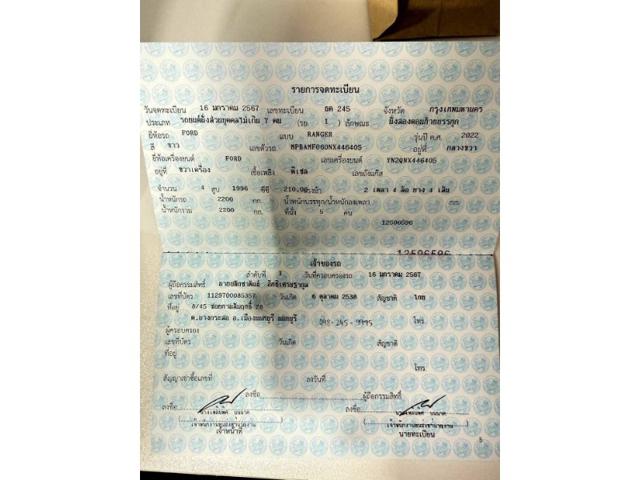 รายการจดทะเบียน
วันจดทะเบียน 16 มกราคม 2567 เลขทะเบียน 245 จังหวัด กรุงเทพมหานคร
ประเภท รถยนต์นั่งส่วนบุคคลไม่เกิน 7 คน (รย. 1 ) ลักษณะ นั่งสองตอนท้ายบรรทุก
ยี่ห้อรถ FORD แบบ RANGER รุ่นปี ค.ศ. 2022
สี ขาว เลขตัวรถ อยู่ที่ กลางขวา
ยี่ห้อเครื่องยนต์ FORD เลขเครื่องยนต์
อยู่ที่ ขวาเครื่อง เชื้อเพลิง ดีเซล เลขถังแก๊ส
จำนวน 4 สูบ 1996 ซีซี 210.00 แรงม้า 2 เพลา 4 ล้อ ยาง 4 เส้น
น้ำหนักรถ 2200 กก. น้ำหนักบรรทุก/น้ำหนักลงเพลา กก.
น้ำหนักรวม 2200 กก. ที่นั่ง 5 คน
12596586
12596586
เจ้าของรถ
ลำดับที่ 1 วันที่ครอบครองรถ 16 มกราคม 2567
ผู้ถือกรรมสิทธิ์
เลขที่บัตร วันเกิด 6 ตุลาคม 2538 สัญชาติ ไทย
ที่อยู่ 8/45
ต.บางกระสอ อ.เมืองนนทบุรี นนทบุรี โทร
ผู้ครอบครอง
เลขที่บัตร วันเกิด สัญชาติ
ที่อยู่
โทร
สัญญาเช่าซื้อเลขที่ ลงวันที่
ลงชื่อ ผู้ถือกรรมสิทธิ์
ลงชื่อ ลงชื่อ
เจ้าหน้าที่ นายทะเบียน
5